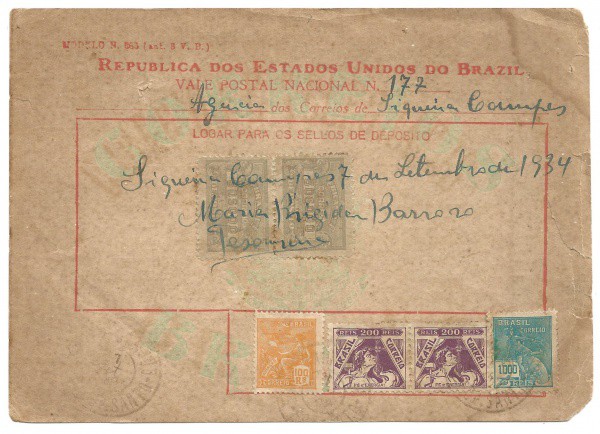 MODELO N. 863 (ant. 8 V. P.)
REPUBLICA DOS ESTADOS UNIDOS DO BRAZIL
VALE POSTAL NACIONAL N. 177
Agencia dos Correios de Siqueira Campos
LOGAR PARA OS SELLOS DE DEPOSITO
Siqueira Campos 7 de Setembro de 1934
Maria Brigida Barrozo
BRASIL
100 RS
CORREIO
REIS 200 REIS
BRASIL CORREIO
REIS 200 REIS
BRASIL CORREIO
BRASIL
CORREIO
1000
REIS